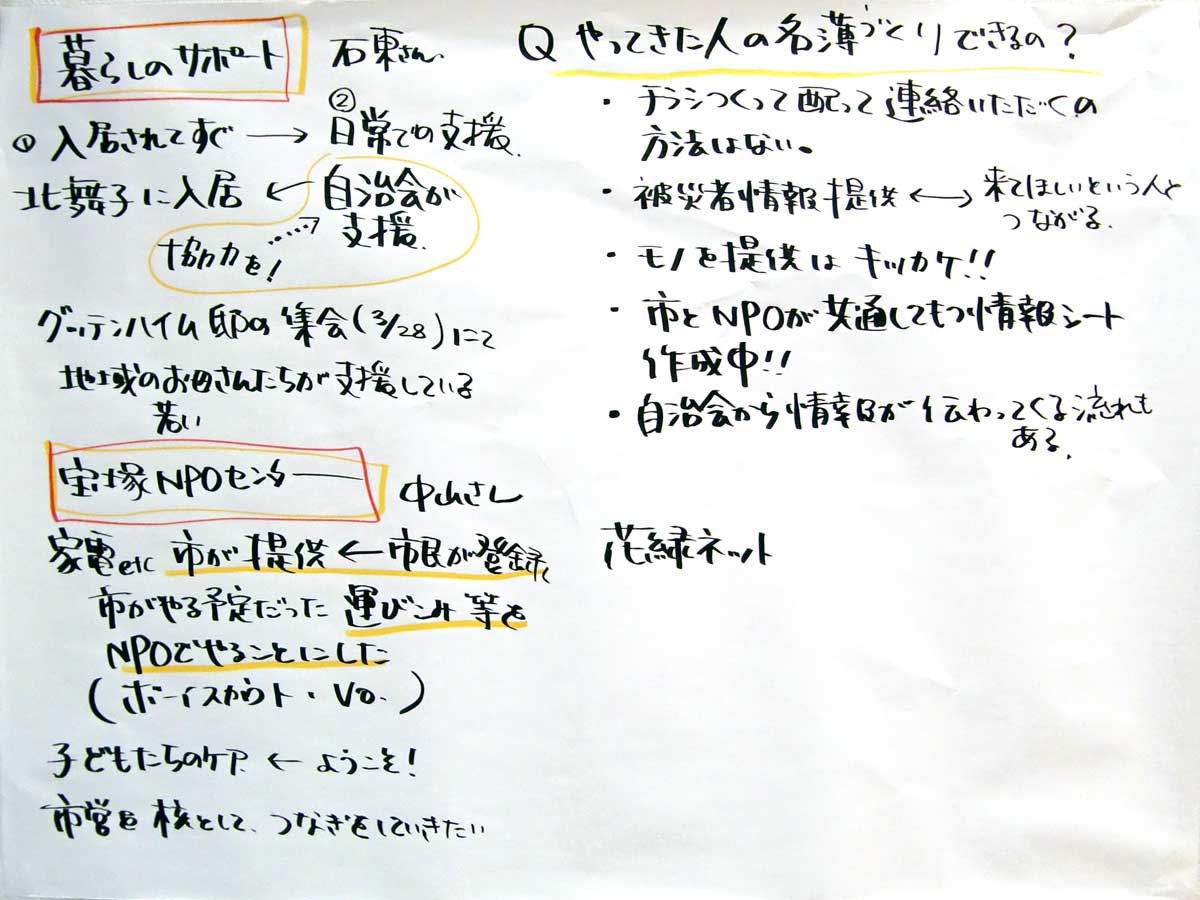 暮らしのサポート 石東さん
① 入居されてすぐ → ② 日常での支援.
北舞子に入居 ← 自治会が
支援.
協力を!
グッテンハイム邸の集会(3/28)にて
地域のお母さんたちが支援している
若い
宝塚NPOセンター 中山さん
家電etc 市が提供 ← 市民が登録し
市がやる予定だった 運びこみ等を
NPOでやることにした
(ボーイスカウト・Vo.)
子どもたちのケア. ← ようこそ!
市営を核として、つなぎをしていきたい
Q やってきた人の名簿づくりできるの?
・チラシつくって配って連絡いただくの
方法はない。
・被災者情報提供 ↔ 来てほしいという人と
つながる.
・モノを提供はキッカケ!!
・市とNPOが共通してもつ情報シート
作成中!!
・自治会から情報が伝わってくる流れも
ある.
花緑ネット